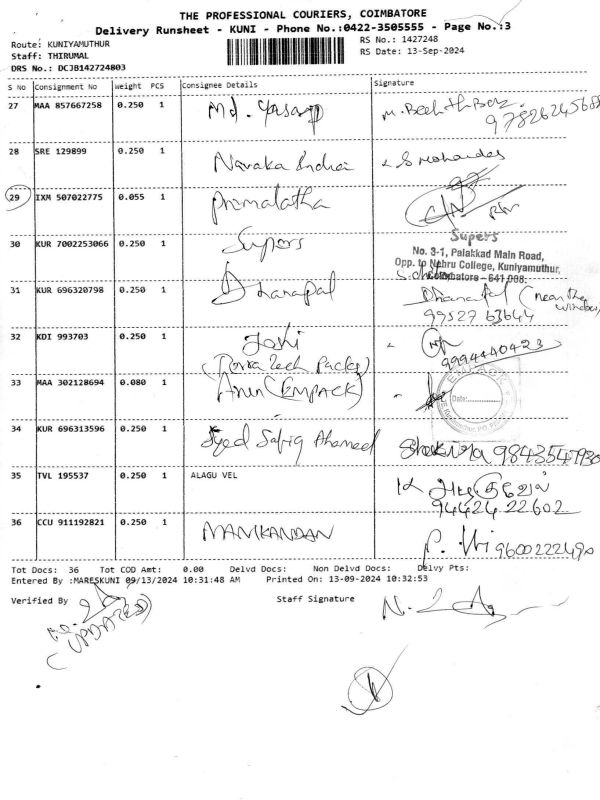 THE PROFESSIONAL COURIERS, COIMBATORE
Delivery Runsheet - KUNI - Phone No.:0422-3505555 - Page No.:3
Route: KUNIYAMUTHUR RS No.: 1427248
Staff: THIRUMAL RS Date: 13-Sep-2024
DRS No.: DCJB142724803
S No Consignment No Weight PCS Consignee Details Signature
27 MAA 857667258 0.250 1 Md.
28 SRE 129899 0.250 1 Navaka India
29 IXM 507022775 0.055 1 Premalatha
30 KUR 7002253066 0.250 1 Supers Supers
No. 3-1, Palakkad Main Road,
Opp. to Nehru College, Kuniyamuthur,
Coimbatore - 641 008.
31 KUR 696320798 0.250 1 Dhanapal Dhanapal (near the window)
99527 63644
32 KDI 993703 0.250 1 Joshi
(Tech Packs) 9994440423
33 MAA 302128694 0.080 1 Arun (EMPACK) EMPACK
Date:
34 KUR 696313596 0.250 1 Syed Safiq Ahamed
35 TVL 195537 0.250 1 ALAGU VEL
94424 22602
36 CCU 911192821 0.250 1 MANIKANDAN
Tot Docs: 36 Tot COD Amt: 0.00 Delvd Docs: Non Delvd Docs: Delvy Pts:
Entered By :MARESKUNI 09/13/2024 10:31:48 AM Printed On: 13-09-2024 10:32:53
Verified By Staff Signature
(UPDATES)